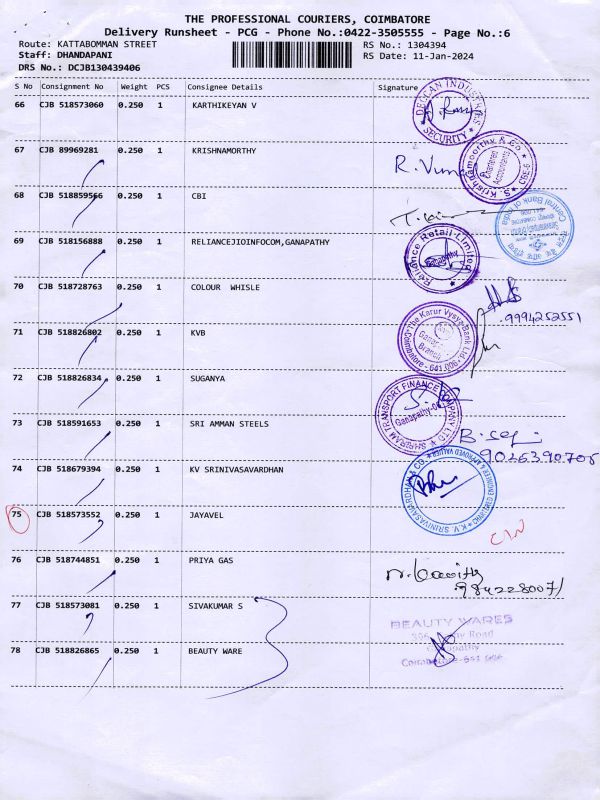 THE PROFESSIONAL COURIERS, COIMBATORE
Delivery Runsheet - PCG - Phone No.:0422-3505555 - Page No.:6
Route: KATTABOMMAN STREET
RS No.: 1304394
Staff: DHANDAPANI
RS Date: 11-Jan-2024
DRS No.: DCJB130439406
S No Consignment No Weight PCS Consignee Details Signature
66 CJB 518573060 0.250 1 KARTHIKEYAN V
SECURITY
67 CJB 89969281 0.250 1 KRISHNAMORTHY
S. Krishnamoorthy & Co.
Chartered
Accountants
CBE-6
68 CJB 518859566 0.250 1 CBI
Central Bank of India
69 CJB 518156888 0.250 1 RELIANCEJIOINFOCOM,GANAPATHY
Reliance Retail Limited
Ganapathy
70 CJB 518728763 0.250 1 COLOUR WHISLE
9994252551
71 CJB 518826802 0.250 1 KVB
The Karur Vysya Bank Ltd
Branch
Coimbatore - 641 006
72 CJB 518826834 0.250 1 SUGANYA
SHRIRAM TRANSPORT FINANCE COMPANY LTD
Ganapathy
73 CJB 518591653 0.250 1 SRI AMMAN STEELS
9026390708
74 CJB 518679394 0.250 1 KV SRINIVASAVARDHAN
K.V. SRINIVASAVARDHAN & CO.
75 CJB 518573552 0.250 1 JAYAVEL
76 CJB 518744851 0.250 1 PRIYA GAS
77 CJB 518573081 0.250 1 SIVAKUMAR S
BEAUTY WARES
78 CJB 518826865 0.250 1 BEAUTY WARE
Coimbatore-641 006